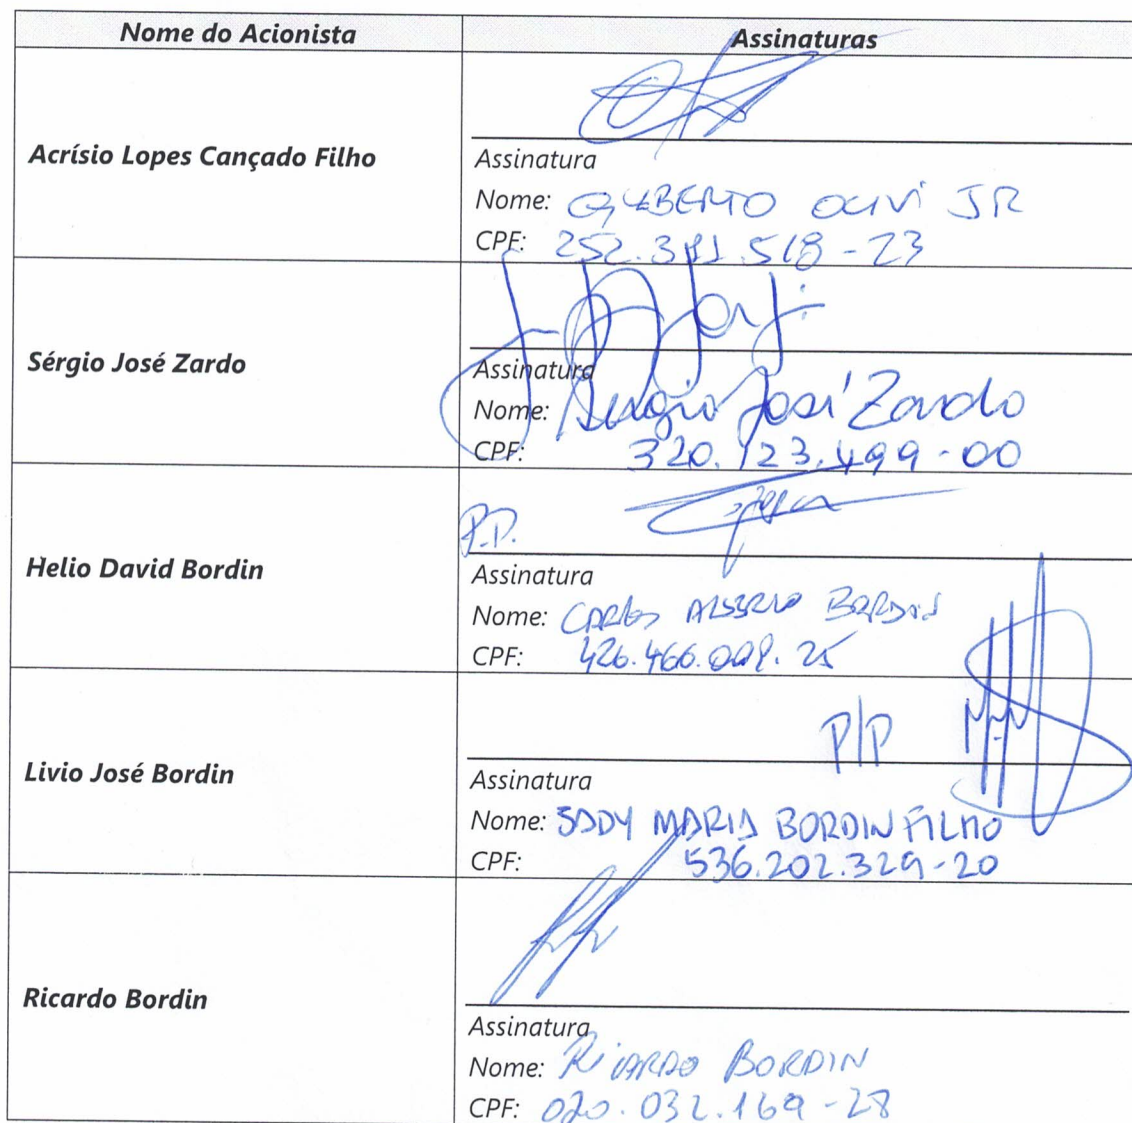 Nome do Acionista Assinaturas
Acrísio Lopes Cançado Filho
Assinatura
Nome: GILBERTO OLIVI JR
CPF: 252.381.518-23
Sérgio José Zardo
Assinatura
Nome: Sergio José Zardo
CPF: 320.123.499-00
Helio David Bordin
P.P.
Assinatura
Nome: CARLOS ALBERTO BORDIN
CPF: 426.466.009.25
Livio José Bordin
P/P
Assinatura
Nome: SADY MARIA BORDIN FILHO
CPF: 536.202.329-20
Ricardo Bordin
Assinatura
Nome: RICARDO BORDIN
CPF: 020.032.169-28